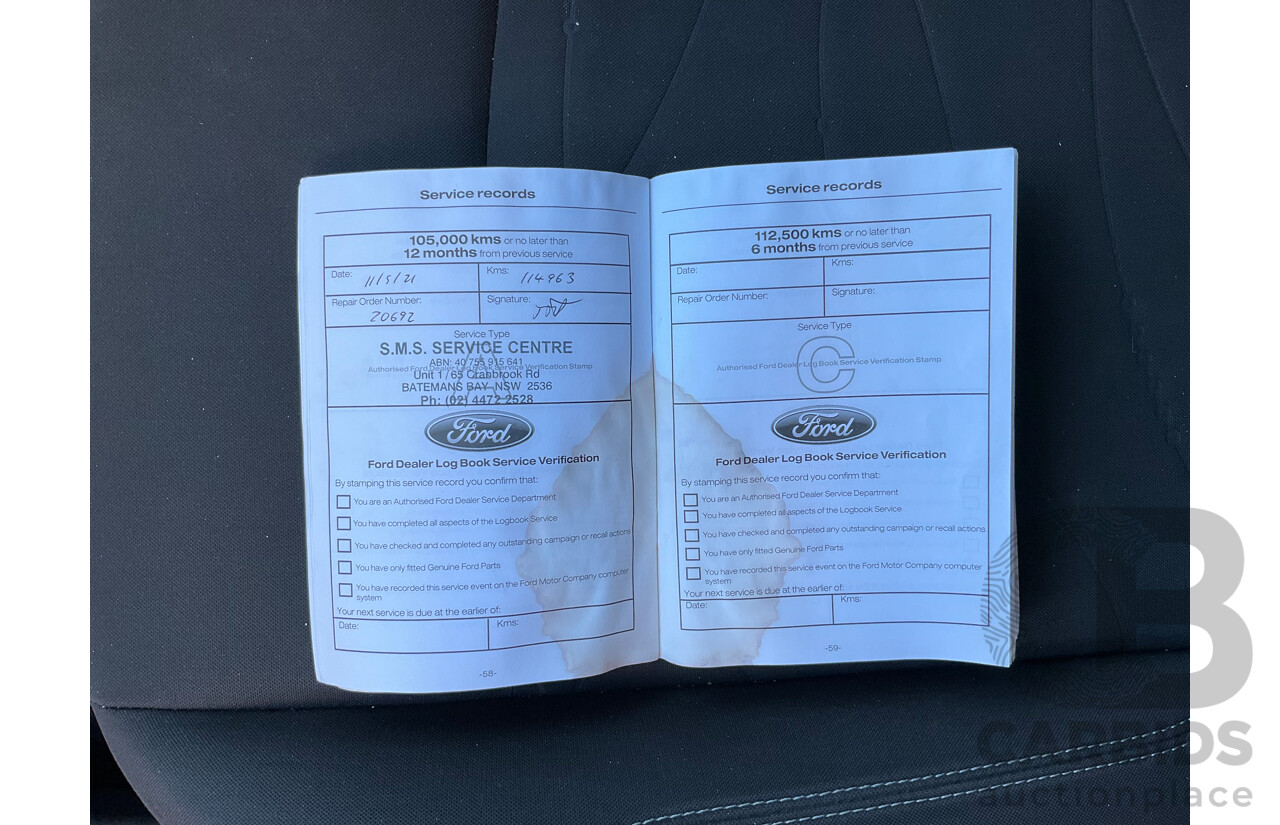 Service records
105,000 kms or no later than
12 months from previous service
Date: 11/5/21
Kms: 114963
Repair Order Number: 20692
Signature:
Service Type
S.M.S. SERVICE CENTRE
ABN: 40 755 915 641
Authorised Ford Dealer Log Book Service Verification Stamp
Unit 1 / 65 Cranbrook Rd
BATEMANS BAY NSW 2536
Ph: (02) 4472 2528
Ford
Ford Dealer Log Book Service Verification
By stamping this service record you confirm that:
You are an Authorised Ford Dealer Service Department
You have completed all aspects of the Logbook Service
You have checked and completed any outstanding campaign or recall actions
You have only fitted Genuine Ford Parts
You have recorded this service event on the Ford Motor Company computer
system
Your next service is due at the earlier of:
Date:
Kms:
-58-
Service records
112,500 kms or no later than
6 months from previous service
Date:
Kms:
Repair Order Number:
Signature:
Service Type
C
Authorised Ford Dealer Log Book Service Verification Stamp
Ford
Ford Dealer Log Book Service Verification
By stamping this service record you confirm that:
You are an Authorised Ford Dealer Service Department
You have completed all aspects of the Logbook Service
You have checked and completed any outstanding campaign or recall actions
You have only fitted Genuine Ford Parts
You have recorded this service event on the Ford Motor Company computer
system
Your next service is due at the earlier of:
Date:
Kms:
-59-
B
CARBIDS
auctionplace